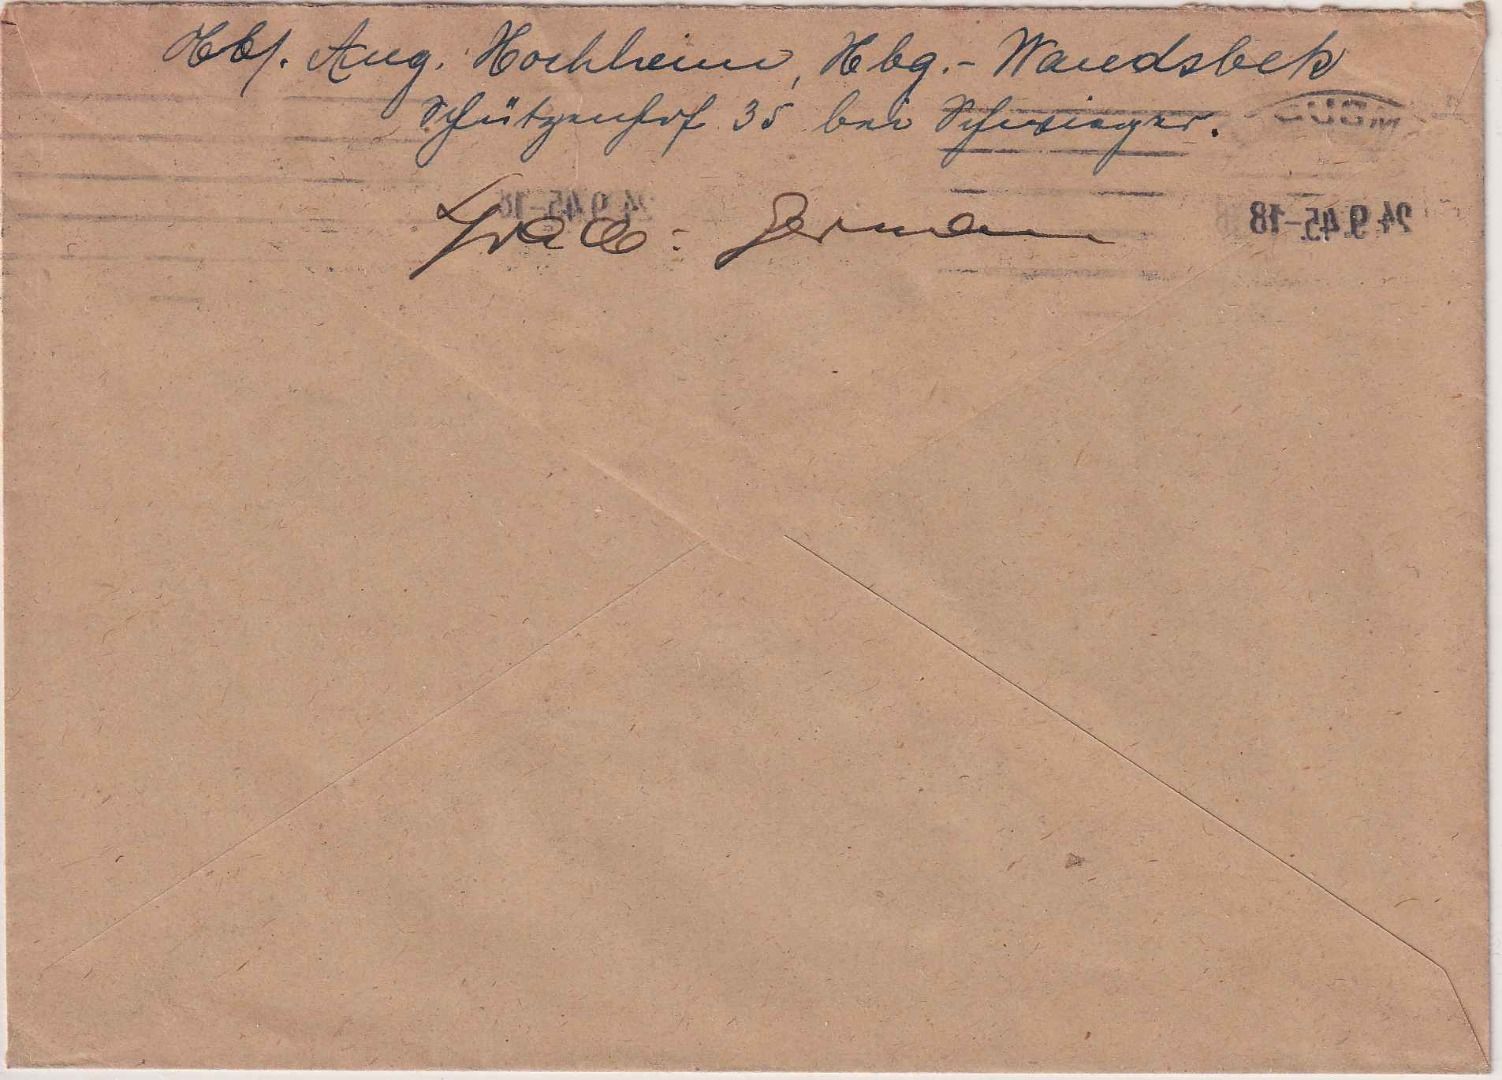 Abs. Aug. Hochheim, Hbg.-Wandsbek
Schützenhof 35 bei Schwieger.
German
24.9.45-18
24.9.45-18